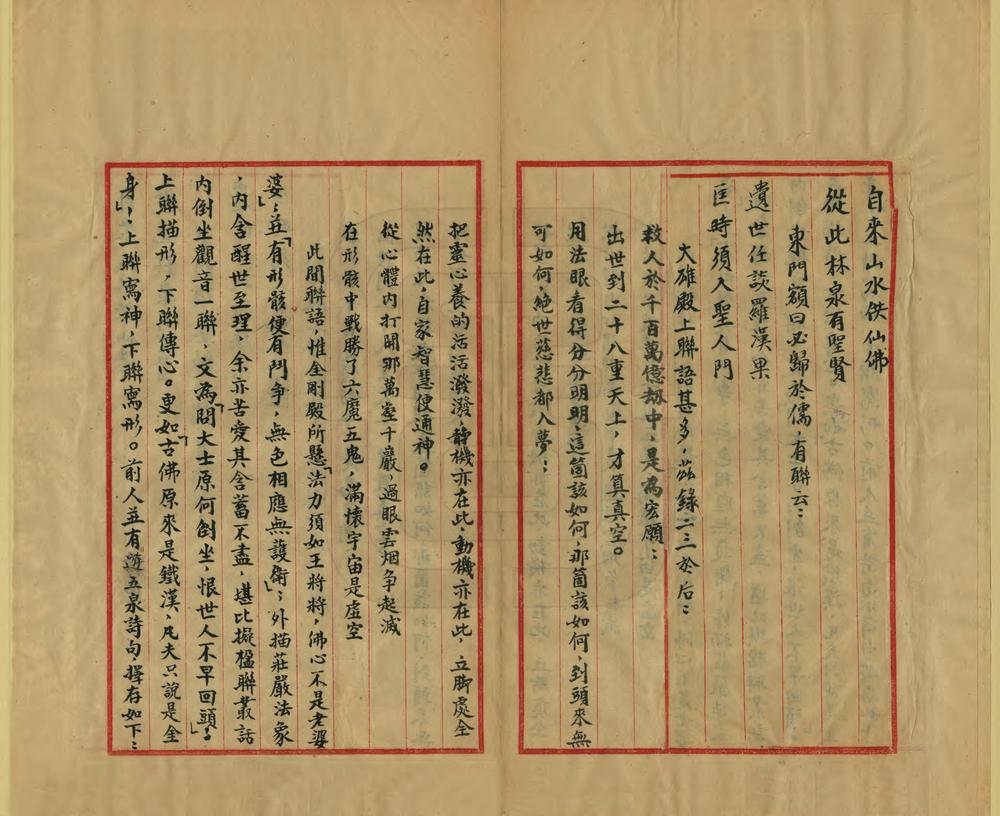 自來山水佚仙佛
從此林泉有聖賢
東門額曰必歸於儒，有聯云：
遺世任談羅漢果
匡時須入聖人門
大雄殿上聯語甚多，茲錄二三於后：
救人於千百萬億劫中，是為宏願；
出世到二十八重天上，才算真空。
用法眼看得分分明明，這箇該如何，那箇該如何，到頭來無
可如何，絕世慈悲都入夢；
把靈心養的活活潑潑，靜機亦在此，動機亦在此，立脚處全
然在此，自家智慧便通神。
從心體內打開那萬壑千巖，過眼雲烟爭起滅
在形骸中戰勝了六魔五鬼，滿懷宇宙是虛空
此間聯語，惟金剛殿所懸「法力須如王將將，佛心不是老婆
婆」；並「有形骸便有鬥爭，無色相應無護衛」；外描莊嚴法象
，內含醒世至理，余亦苦愛其含蓄不盡，堪比擬楹聯叢話
內倒坐觀音一聯，文為「問大士原何倒坐，恨世人不早回頭」。
上聯描形，下聯傳心。更如「古佛原來是鐵漢，凡夫只說是金
身」：上聯寫神，下聯寫形。前人並有遊五泉詩句，擇存如下：